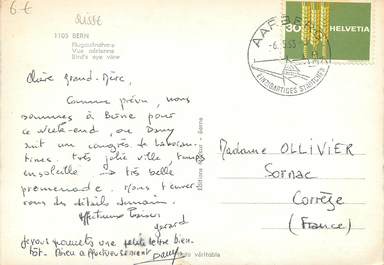 6-€
Suisse
1105 BERN
Flugaufnahme
Vue aérienne
Bird's eye view
30 HELVETIA
AARBERG
-6.5.63
EINZIGARTIGES STÄDTCHEN
Chère Grand-Mère,
Comme prévu, nous
sommes à Berne pour
ce week-end, où Dany
suit un congrès de laboran-
tines. Très jolie ville, temps
ensoleillé → très belle
promenade.
les détails demain.
Affectueux Baisers
Gérard
Je vous promets une petite lettre bien-
tôt. Affectueusement
Dany
Editions - Berne
Photo véritable
Madame OLLIVIER
Sornac
Corrèze
(France)